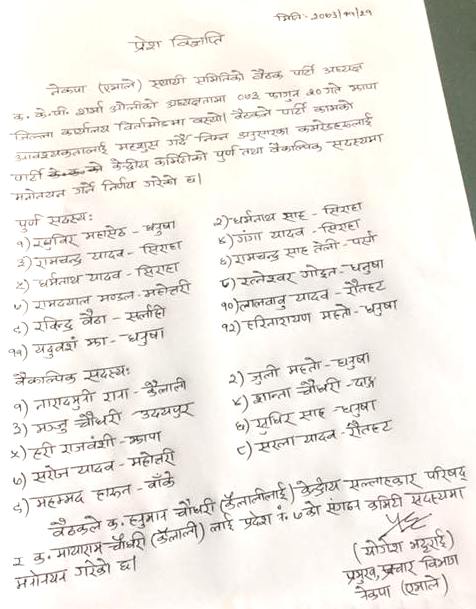 मिति:- २०७३/११/२१
प्रेश विज्ञप्ति
नेकपा (एमाले) स्थायी समितिको बैठक पार्टी अध्यक्ष
क. के.पी. शर्मा ओलीको अध्यक्षतामा ०७३ फागुन २० गते झापा
जिल्ला कार्यालय विर्तामोडमा वस्यो। बैठकले पार्टी कामको
आवश्यकतालाई महशुस गर्दै निम्न अनुसारका कमरेडहरुलाई
पार्टी केन्द्रीय कमिटीको पुर्ण तथा वैकाल्पिक सदस्यमा
मनोनयन गर्ने निर्णय गरेको छ।
पुर्ण सदस्य:
१) रघुविर महासेठ - धनुषा २) धर्मनाथ साह - सिराहा
३) रामचन्द्र यादव - सिराहा ४) गंगा यादव - सिराहा
५) धर्मनाथ यादव - सिराहा ६) रामचन्द्र साह तेली - पर्सा
७) रामदयाल मण्डल - महोत्तरी ८) रत्नेश्वर गोइत - धनुषा
९) रविन्द्र बैठा - सर्लाही १०) लालवावु यादव - रौतहट
११) यदुवशं झा - धनुषा १२) हरिनारायण महतो - धनुषा
वैकाल्पिक सदस्य:
१) तारादमुत्री राना - कैलाली २) जुली महतो - धनुषा
३) मञ्जु चौधरी - उदयपुर ४) शान्ता चौधरी - दाङ्ग
५) हरी राजवंशी - झापा ६) सुधिर साह - धनुषा
७) सरोज यादव - महोत्तरी ८) सरला यादव - रौतहट
९) महम्मद हारुन - बाँके
बैठकले क. हनुमान चौधरी (कैलाली)लाई केन्द्रीय सल्लाहकार परिषद्
र क. मायाराम चौधरी (कैलाली) लाई प्रदेश नं. ७ को संगठन कमिटी सदस्यमा
मनोनयन गरेको छ।
(योगेश भट्टराई)
प्रमुख, प्रचार विभाग
नेकपा (एमाले)